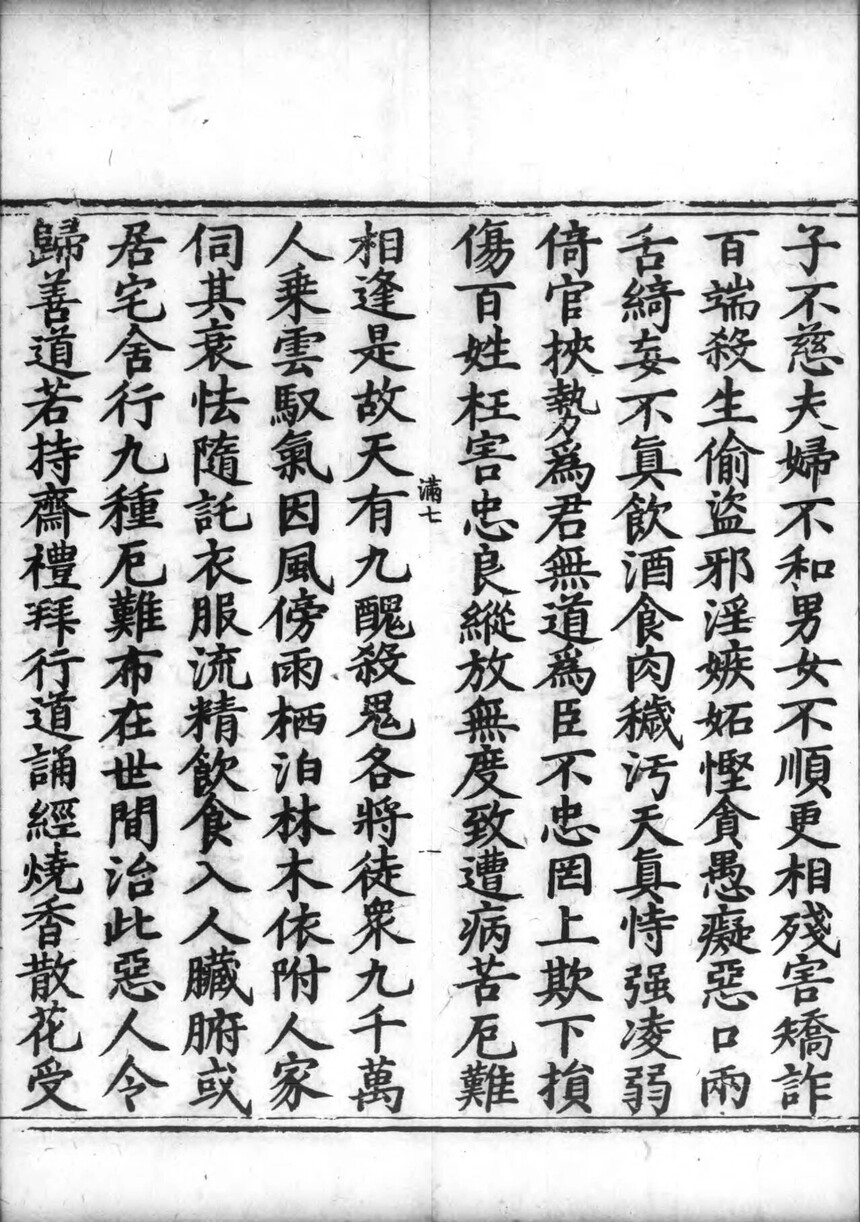 子不慈夫婦不和男女不順更相殘害矯詐
百端殺生偷盜邪淫嫉妬慳貪愚癡惡口兩
舌綺妄不真飲酒食肉穢汚天真恃强凌弱
倚官挾勢為君無道為臣不忠罔上欺下損
傷百姓枉害忠良縱放無度致遭病苦厄難
滿七
一
相逢是故天有九醜殺鬼各將徒衆九千萬
人乘雲馭氣因風傍雨栖泊林木依附人家
伺其衰怯隨託衣服流精飲食入人臟腑或
居宅舍行九種厄難布在世間治此惡人令
歸善道若持齋禮拜行道誦經燒香散花受